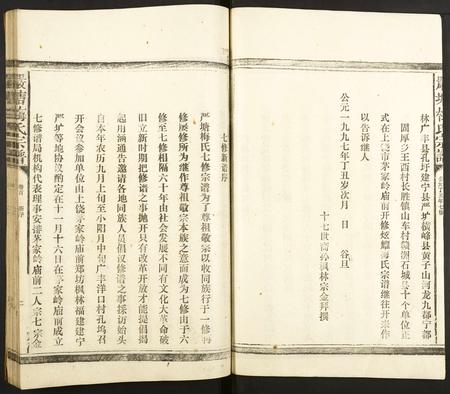 林广丰县孔圩建宁县严圹横峰县黄子山河龙九都宁都
固厚乡王西村长胜镇山车村赣渊石城县十个单位正
式在上饶市茅家岭庙前开修炫鳣梅氏宗谱继往开来作
以告诱继人
公元一九九七年丁丑岁次月 日 谷旦
十七世裔孙枫林宗金拜撰
严塘梅氏宗谱
七修新谱序
严塘梅氏七修宗谱为了尊祖敬宗以收同族行于一修再
修屡修所为继作尊祖敬宗本族之意而成为七修由于六
修至七修相隔六十年由社会发展经济有文化大革命破
旧立新时期把修谱之事抛开只有改革开放才能提倡谒
起用涵通告邀请各地同族人员倡议修谱之事採访始头
自本年农历九月上旬至小阳月中旬广丰洋口村孔坞召
开会议参加单位由上饶茅家岭庙前郑坊枫林福建建宁
严圹等地协议酌定在十一月十六日在茅家岭庙前成立
七修谱局机构代表理事安排茅家岭庙前二人宗七宗金
嚴塘梅氏宗譜